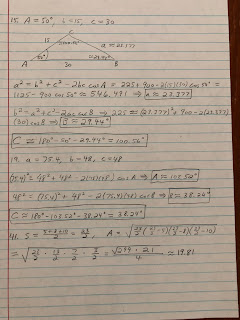 15. A = 50°, b = 15, c = 30
C
15
100.56°
a ≈ 23.377
A
50°
29.44°
B
30
a² = b² + c² - 2bc cos A = 225 + 900 - 2(15)(30) cos 50° =
1125 - 900 cos 50° ≈ 546.491 ⇒ a ≈ 23.377
b² = a² + c² - 2ac cos B ⇒ 225 ≈ (23.377)² + 900 - 2(23.377)
(30) cos B ⇒ B ≈ 29.44°
C ≈ 180° - 50° - 29.44° ≈ 100.56°
19. a = 75.4, b = 48, c = 48
(75.4)² = 48² + 48² - 2(48)(48) cos A ⇒ A ≈ 103.52°
48² = (75.4)² + 48² - 2(75.4)(48) cos B ⇒ B ≈ 38.24°
C ≈ 180° - 103.52° - 38.24° = 38.24°
41. S = (5+8+10)/2 = 23/2, A = √(23/2 (23/2 - 5)(23/2 - 8)(23/2 - 10)
= √(23/2 · 13/2 · 7/2 · 3/2) = √(299 · 21)/4 ≈ 19.81